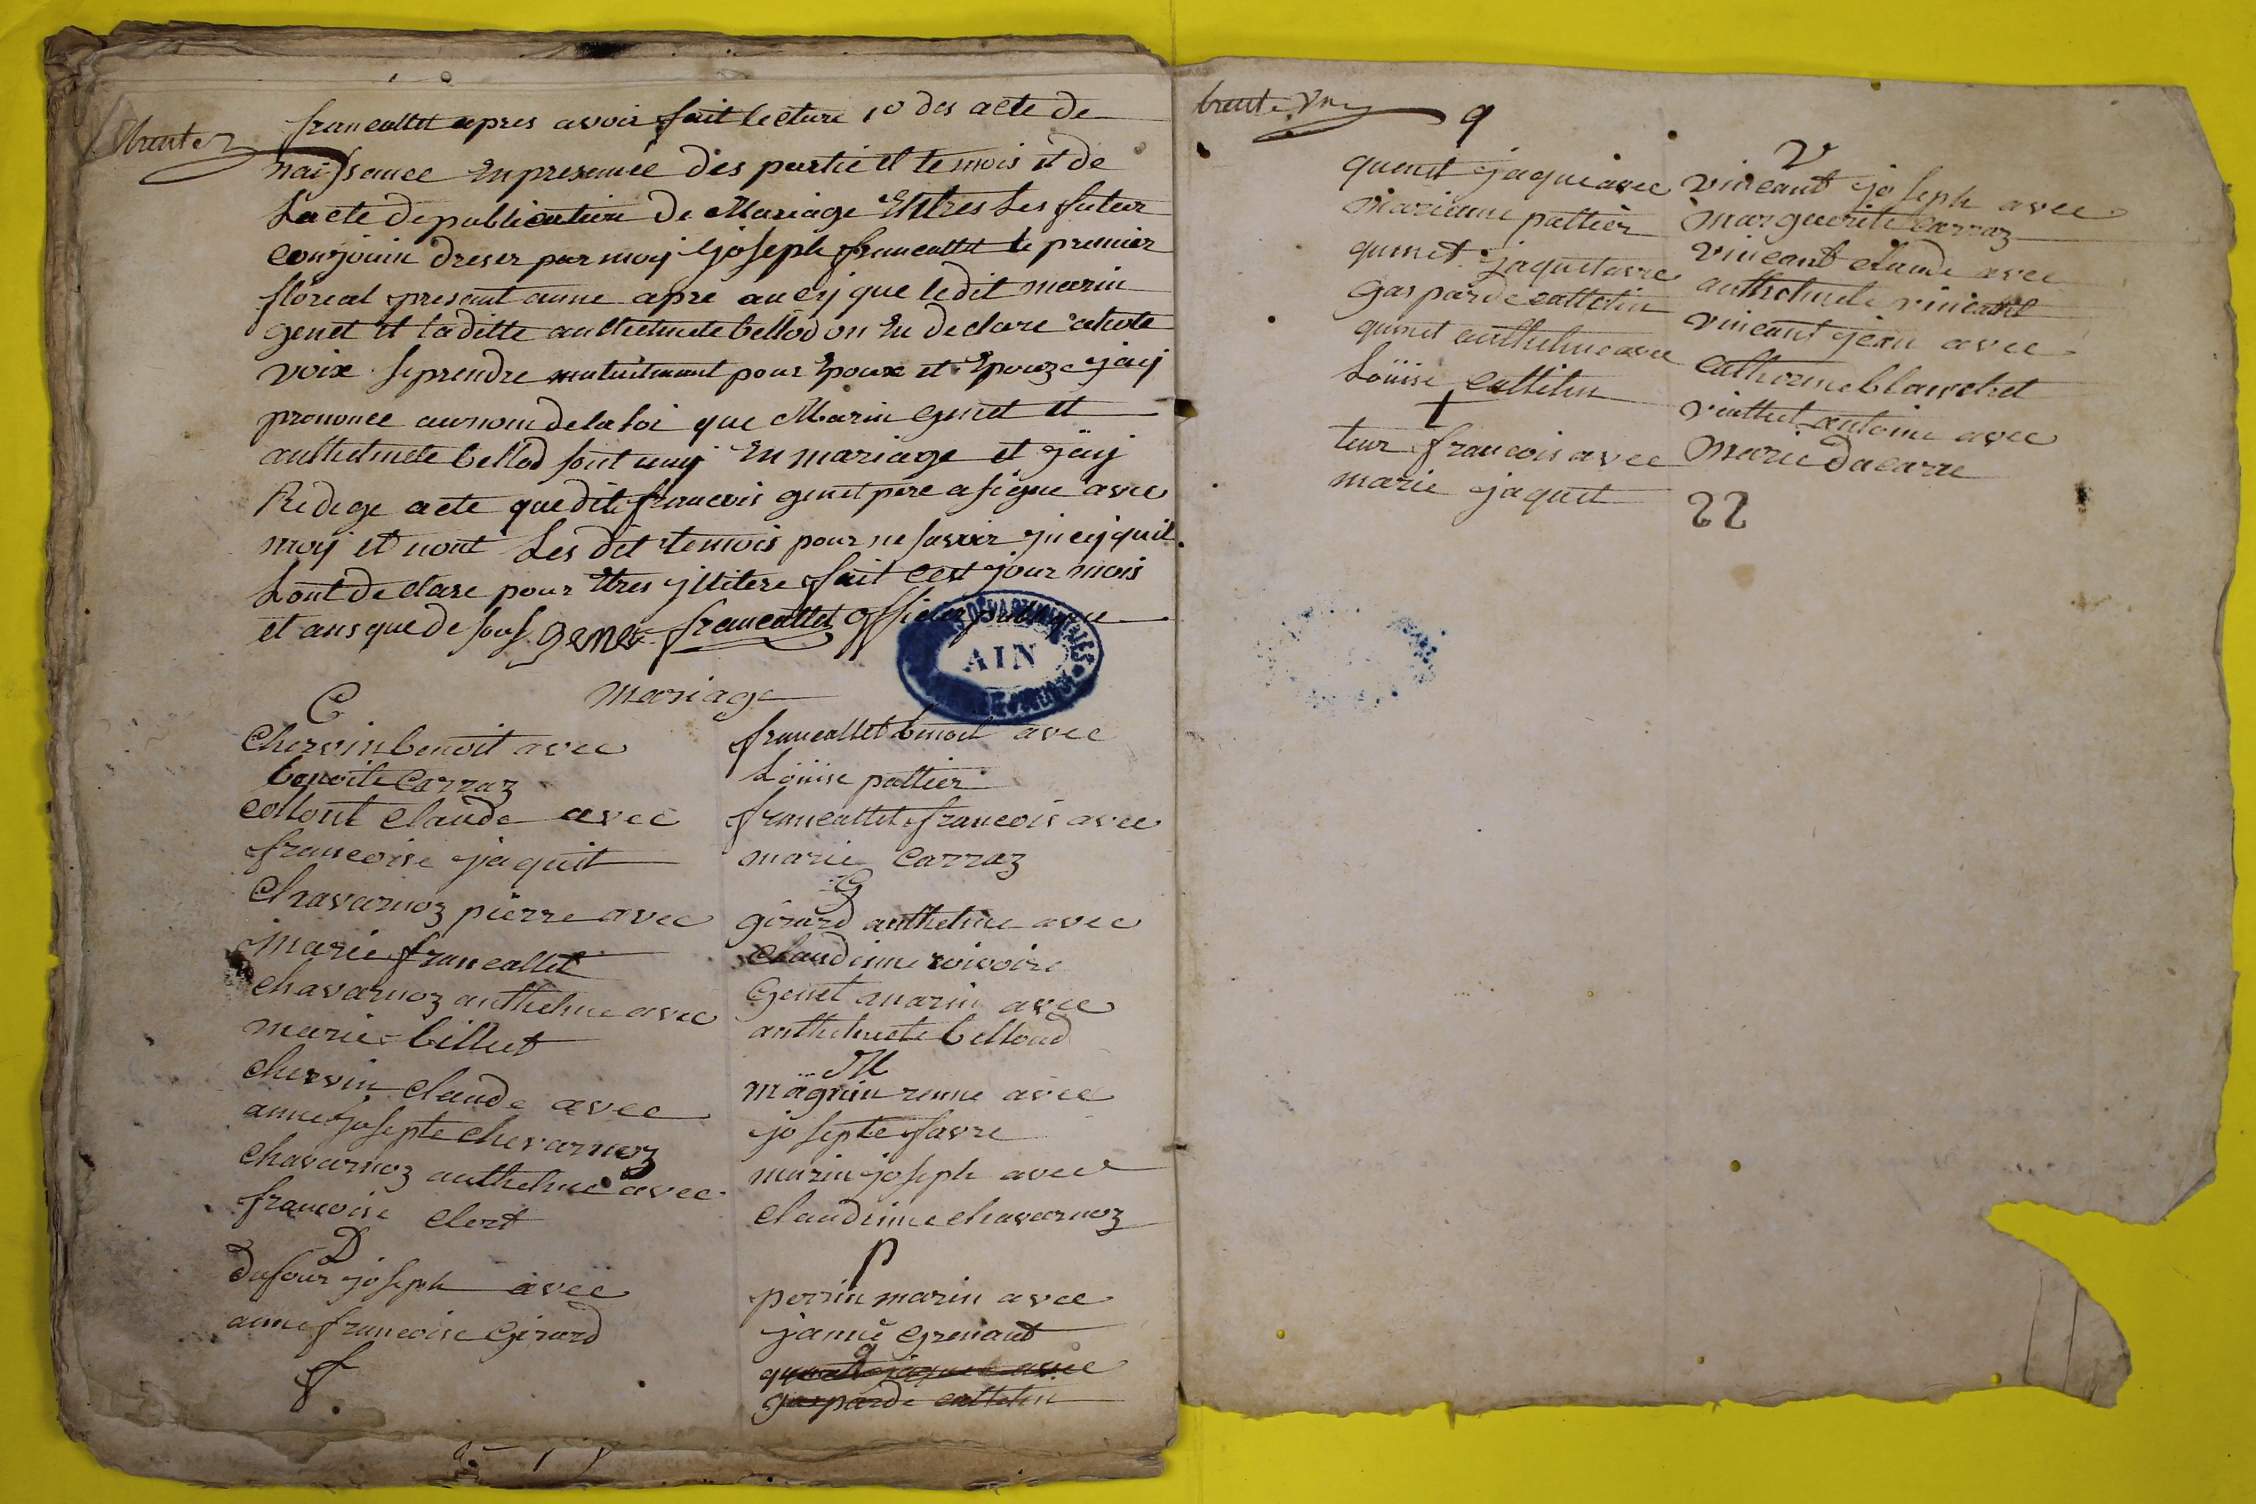 trente
francallet apres avoir fait lecture 1o des acte de
naissance En presence des partie et temois et de
Lacte de publication de Mariage Entres Les futeur
conjoüin dreser par moy joseph francallet le premier
floreal present anne apre aucy que ledit marin
genet et laditte anthelmete bellod on Eu declare
voix se prendre mutuelmant pour Epoux et Epouze jay
prononce au nom de la loi que Marin genet et
anthelmete bellod sont uny En mariage et jäy
Redige acte que dit francois genet pere a signe avec
moy et nont Les dit temois pour ne savoir
Lont declare pour Etres jllitere fait cest jour mois
et ans que de sous genet francallet officier publique
ARCHIVES DÉPARTEMENTALES
AIN
mariage
C
chervin benoit avec
benoite Carraz
collont claude avec
francoise jaquit
Chavarnoz pierre avec
Marie francallet
chavarnoz anthelme avec
marie billiet
chervin claude avec
anne josepte chevarnoz
chavarnoz anthelme avec
francoise clert
D
dufour joseph avec
anne francoise Girard
f
francallet benoit avec
Löüise pattier
francallet francois avec
marie Carraz
G
girard anthelme avec
claudinne roivoire
Genet marin avec
anthelmete belloud
M
mägnin renne avec
josepte favre
marin joseph avec
claudinne chavarnoz
P
perrin marin avec
janne Grenant
q
quinet jaque avec
gasparde cattelin
trente Vn
q
quenet jaque avec
Marianne pattier
quinet jaquet avec
Gasparde cattelin
quinet anthelme avec
Löüise Cattelin
t
teur francois avec
marie jaquet
V
Vincant joseph avec
Marguerite Carraz
Vincant claude avec
anthelmete vincant
vincant jean avec
Catherine blanchet
viathet antoine avec
Marie Dacarre
22